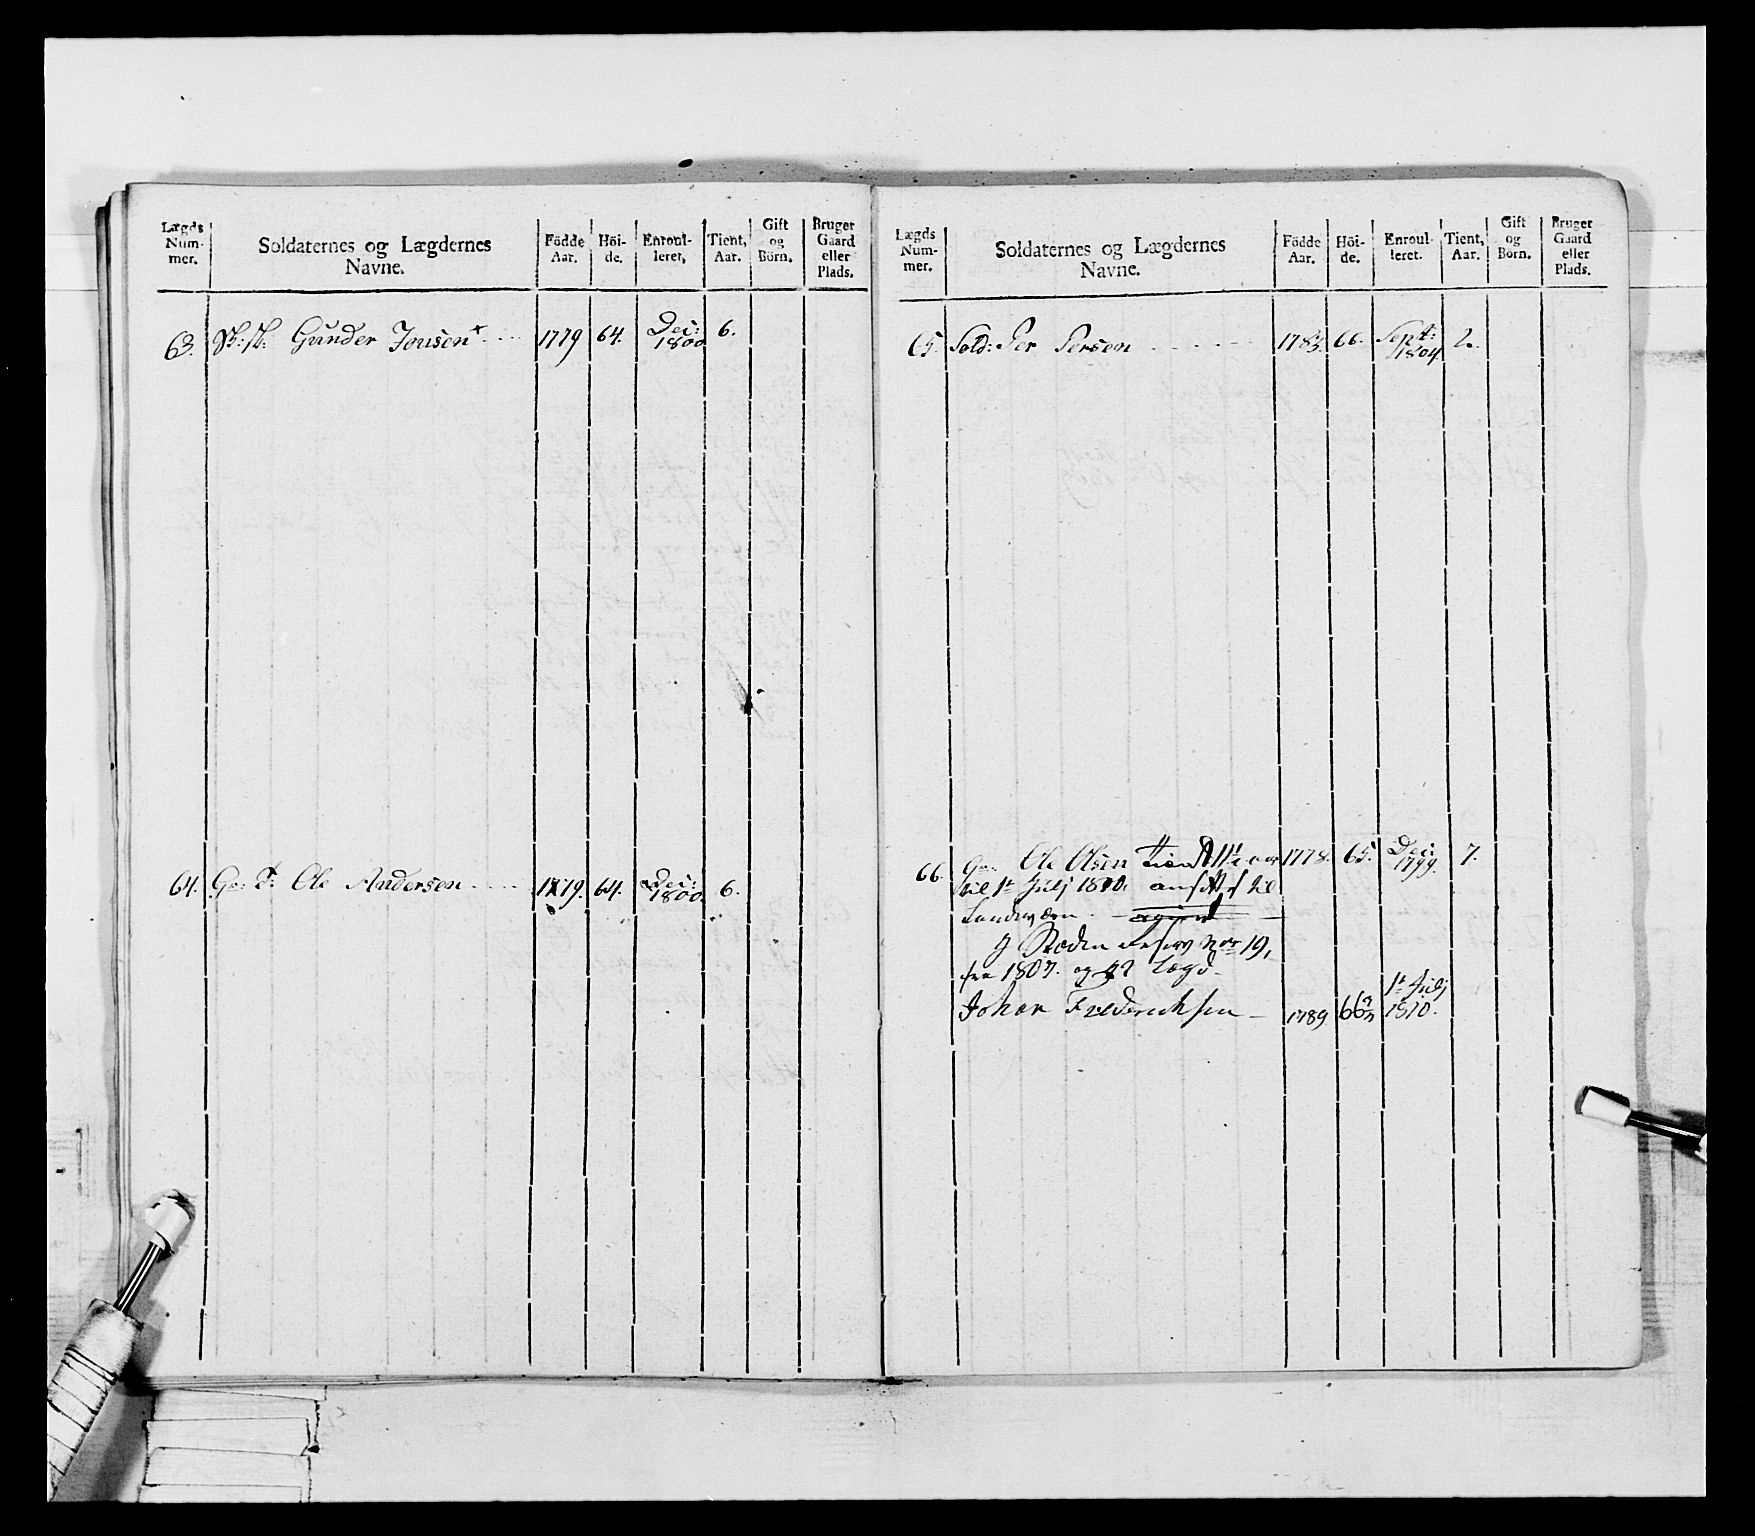 Lægds Num- mer. Soldaternes og Lægdernes Navne. Födde Aar. Höi- de. Enroul- leret. Tient, Aar. Gift og Börn. Bruger Gaard eller Plads.
63. Gunder Jonsen + 1779 64. Dec: 1800 6.
64. Ge: C: Ole Andersen 1779. 64. Dec: 1800 6.
Lægds Num- mer. Soldaternes og Lægdernes Navne. Födde Aar. Höi- de. Enroul- leret. Tient, Aar. Gift og Börn. Bruger Gaard eller Plads.
65. Sold: Per Persen 1783. 66. Sept: 1804. 2.
66. Ge: Ole Olsen tient 11½ aar 1778. 65. Dec: 1799. 7.
til 1te Julj 1810. ansat til
Landværn.
No 19,
fra 1807. og Lægd
Johan Frederichsen 1789 66 1te Julj 1810.